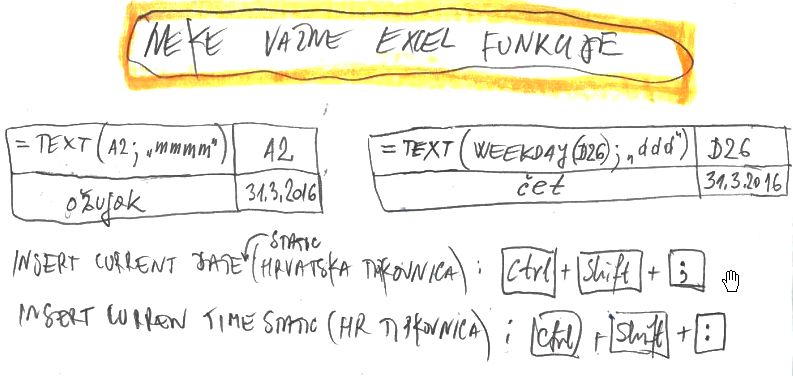 NEKE VAŽNE EXCEL FUNKCIJE
=TEXT(A2;„mmmm") A2
ožujak 31.3.2016
=TEXT(WEEKDAY(D26);„ddd") D26
čet 31.3.2016
STATIC
INSERT CURRENT DATE (HRVATSKA TIPKOVNICA) : Ctrl + Shift + ;
INSERT CURREN TIME STATIC (HR TIPKOVNICA) : Ctrl + Shift + :